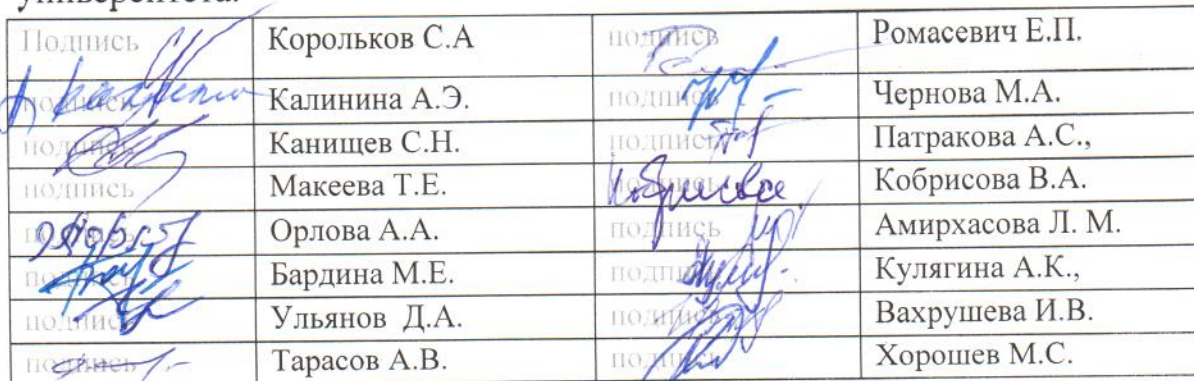 университета.
Подпись Корольков С.А подпись Ромасевич Е.П.
подпись Калинина А.Э. подпись Чернова М.А.
подпись Канищев С.Н. подпись Патракова А.С.,
подпись Макеева Т.Е. подпись Кобрисова В.А.
подпись Орлова А.А. подпись Амирхасова Л. М.
подпись Бардина М.Е. подпись Кулягина А.К.,
подпись Ульянов Д.А. подпись Вахрушева И.В.
подпись Тарасов А.В. подпись Хорошев М.С.